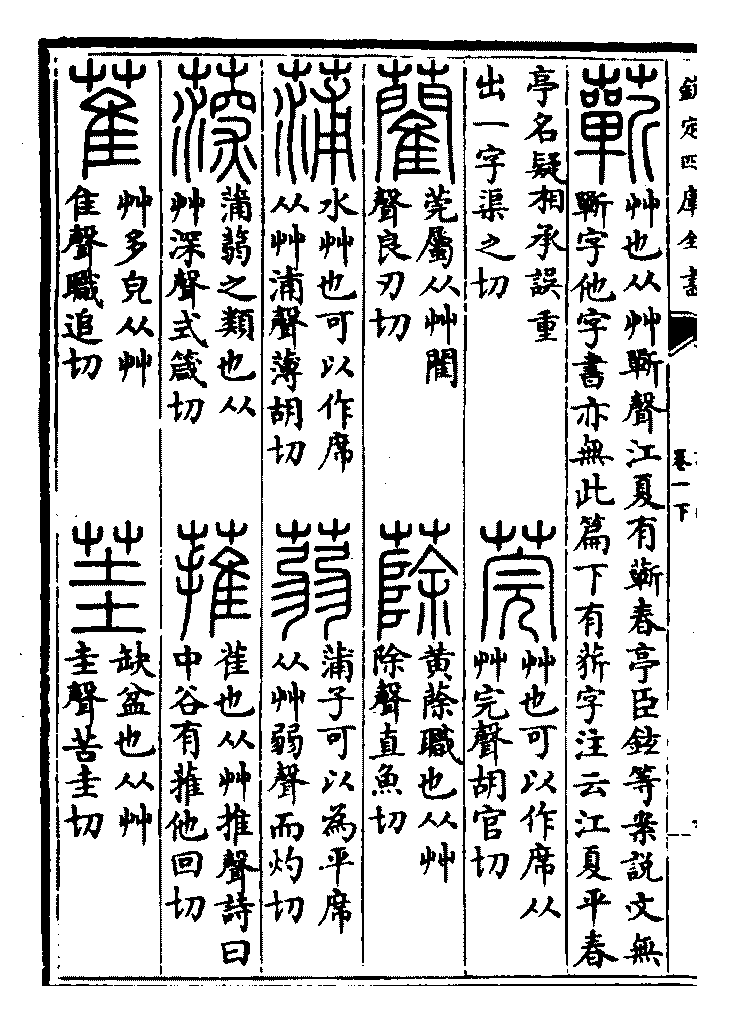 欽定四庫全書
卷一下
蘄
艸也从艸蘄聲江夏有蘄春亭臣鉉等案説文無
蘄字他字書亦無此篇下有菥字注云江夏平春
亭名疑相承誤重
出一字渠之切
莞
艸也可以作席从
艸完聲胡官切
藺
莞屬从艸閵
聲良刃切
蒢
黄蒢職也从艸
除聲直魚切
蒲
水艸也可以作席
从艸浦聲薄胡切
蒻
蒲子可以為平席
从艸弱聲而灼切
蒤
蒲蒻之類也从
艸深聲式箴切
蓷
萑也从艸推聲詩曰
中谷有蓷他回切
萑
艸多皃从艸
隹聲職追切
茥
缺盆也从艸
圭聲苦圭切